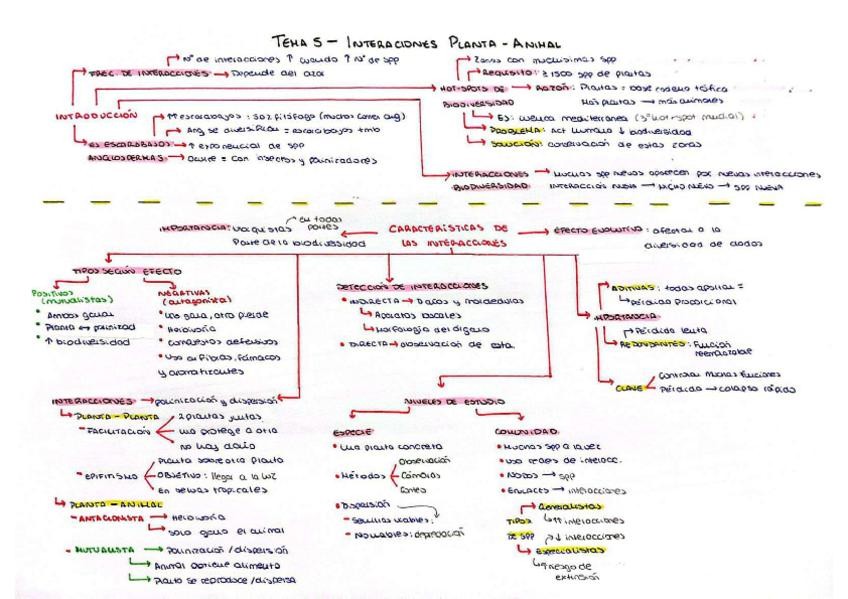 TEMA 5 - INTERACIONES PLANTA - ANIMAL
Nº de interacciones ↑ cuando ↑ Nº de spp
FREC. DE INTERACCIONES → Depende del azar
Zonas con muchísimas spp
Requisito: ≥ 1500 spp de plantas
HOT-SPOTS DE BIODIVERSIDAD → RAZÓN: Plantas = base cadena trófica
Más plantas → más animales
Ej: cuenca mediterránea (3º hot-spot mundial)
PROBLEMA: Act humana ↓ biodiversidad
SOLUCIÓN: conservación de estas zonas
INTRODUCCIÓN
↑↑ escarabajos: 50% fitófago (mucho come ang)
Ang se diversifican = escarabajos tmb
EJ ESCARABAJOS → ↑ exponencial de spp
ANGIOSPERMAS → Ocurre = con insectos y polinizadores
INTERACCIONES → Muchas spp nuevas aparecen por nuevas interacciones
BIODIVERSIDAD: INTERACCIÓN NUEVA → NICHO NUEVO → SPP NUEVA
CARACTERÍSTICAS DE LAS INTERACCIONES
IMPORTANCIA: Vaquistas → en todas partes
Parte de la biodiversidad
EFECTO EVOLUTIVO: afectan a la
diversidad de clados
TIPOS SEGÚN EFECTO
POSITIVOS (mutualistas)
• Ambos ganan
• Planta ↔ polinizad
• ↑ biodiversidad
NEGATIVAS (antagonista)
• Uno gana, otro pierde
• Herbivoría
• Compuestos defensivos
• Uso en fibras, fármacos
y aromatizantes
DETECCIÓN DE INTERACCIONES
• INDIRECTA → Daños y mordeduras
Aparatos bucales
Morfología del órgano
• DIRECTA → observación de esta.
IMPORTANCIA
ADITIVAS: todas aportan =
Pérdida proporcional
Pérdida lenta
REDUNDANTES: Función
reemplazable
CLAVE
Controlan muchas funciones
Pérdida → colapso rápido
INTERACCIONES → polinización y dispersión
PLANTA - PLANTA
- FACILITACIÓN
2 plantas juntas
una protege a otra
no hay daño
- EPIFITISMO
Planta sobre otra planta
OBJETIVO: llegar a la luz
En selvas tropicales
PLANTA - ANIMAL
- ANTAGONISTA → Herbivoría
Solo gana el animal
- MUTUALISTA → Polinización / dispersión
Animal obtiene alimento
Planta se reproduce / dispersa
NIVELES DE ESTUDIO
ESPECIE
• Una planta concreta
• Métodos
Observación
Cámaras
Conteo
• Dispersión
- Semillas viables:
- No viables: depredación
COMUNIDAD
• Muchas spp a la vez
• Uso redes de interacc.
• NODOS → spp
• ENLACES → interacciones
TIPOS DE SPP
Generalistas
↑↑ interacciones
↓ interacciones
Especialistas
riesgo de
extinción